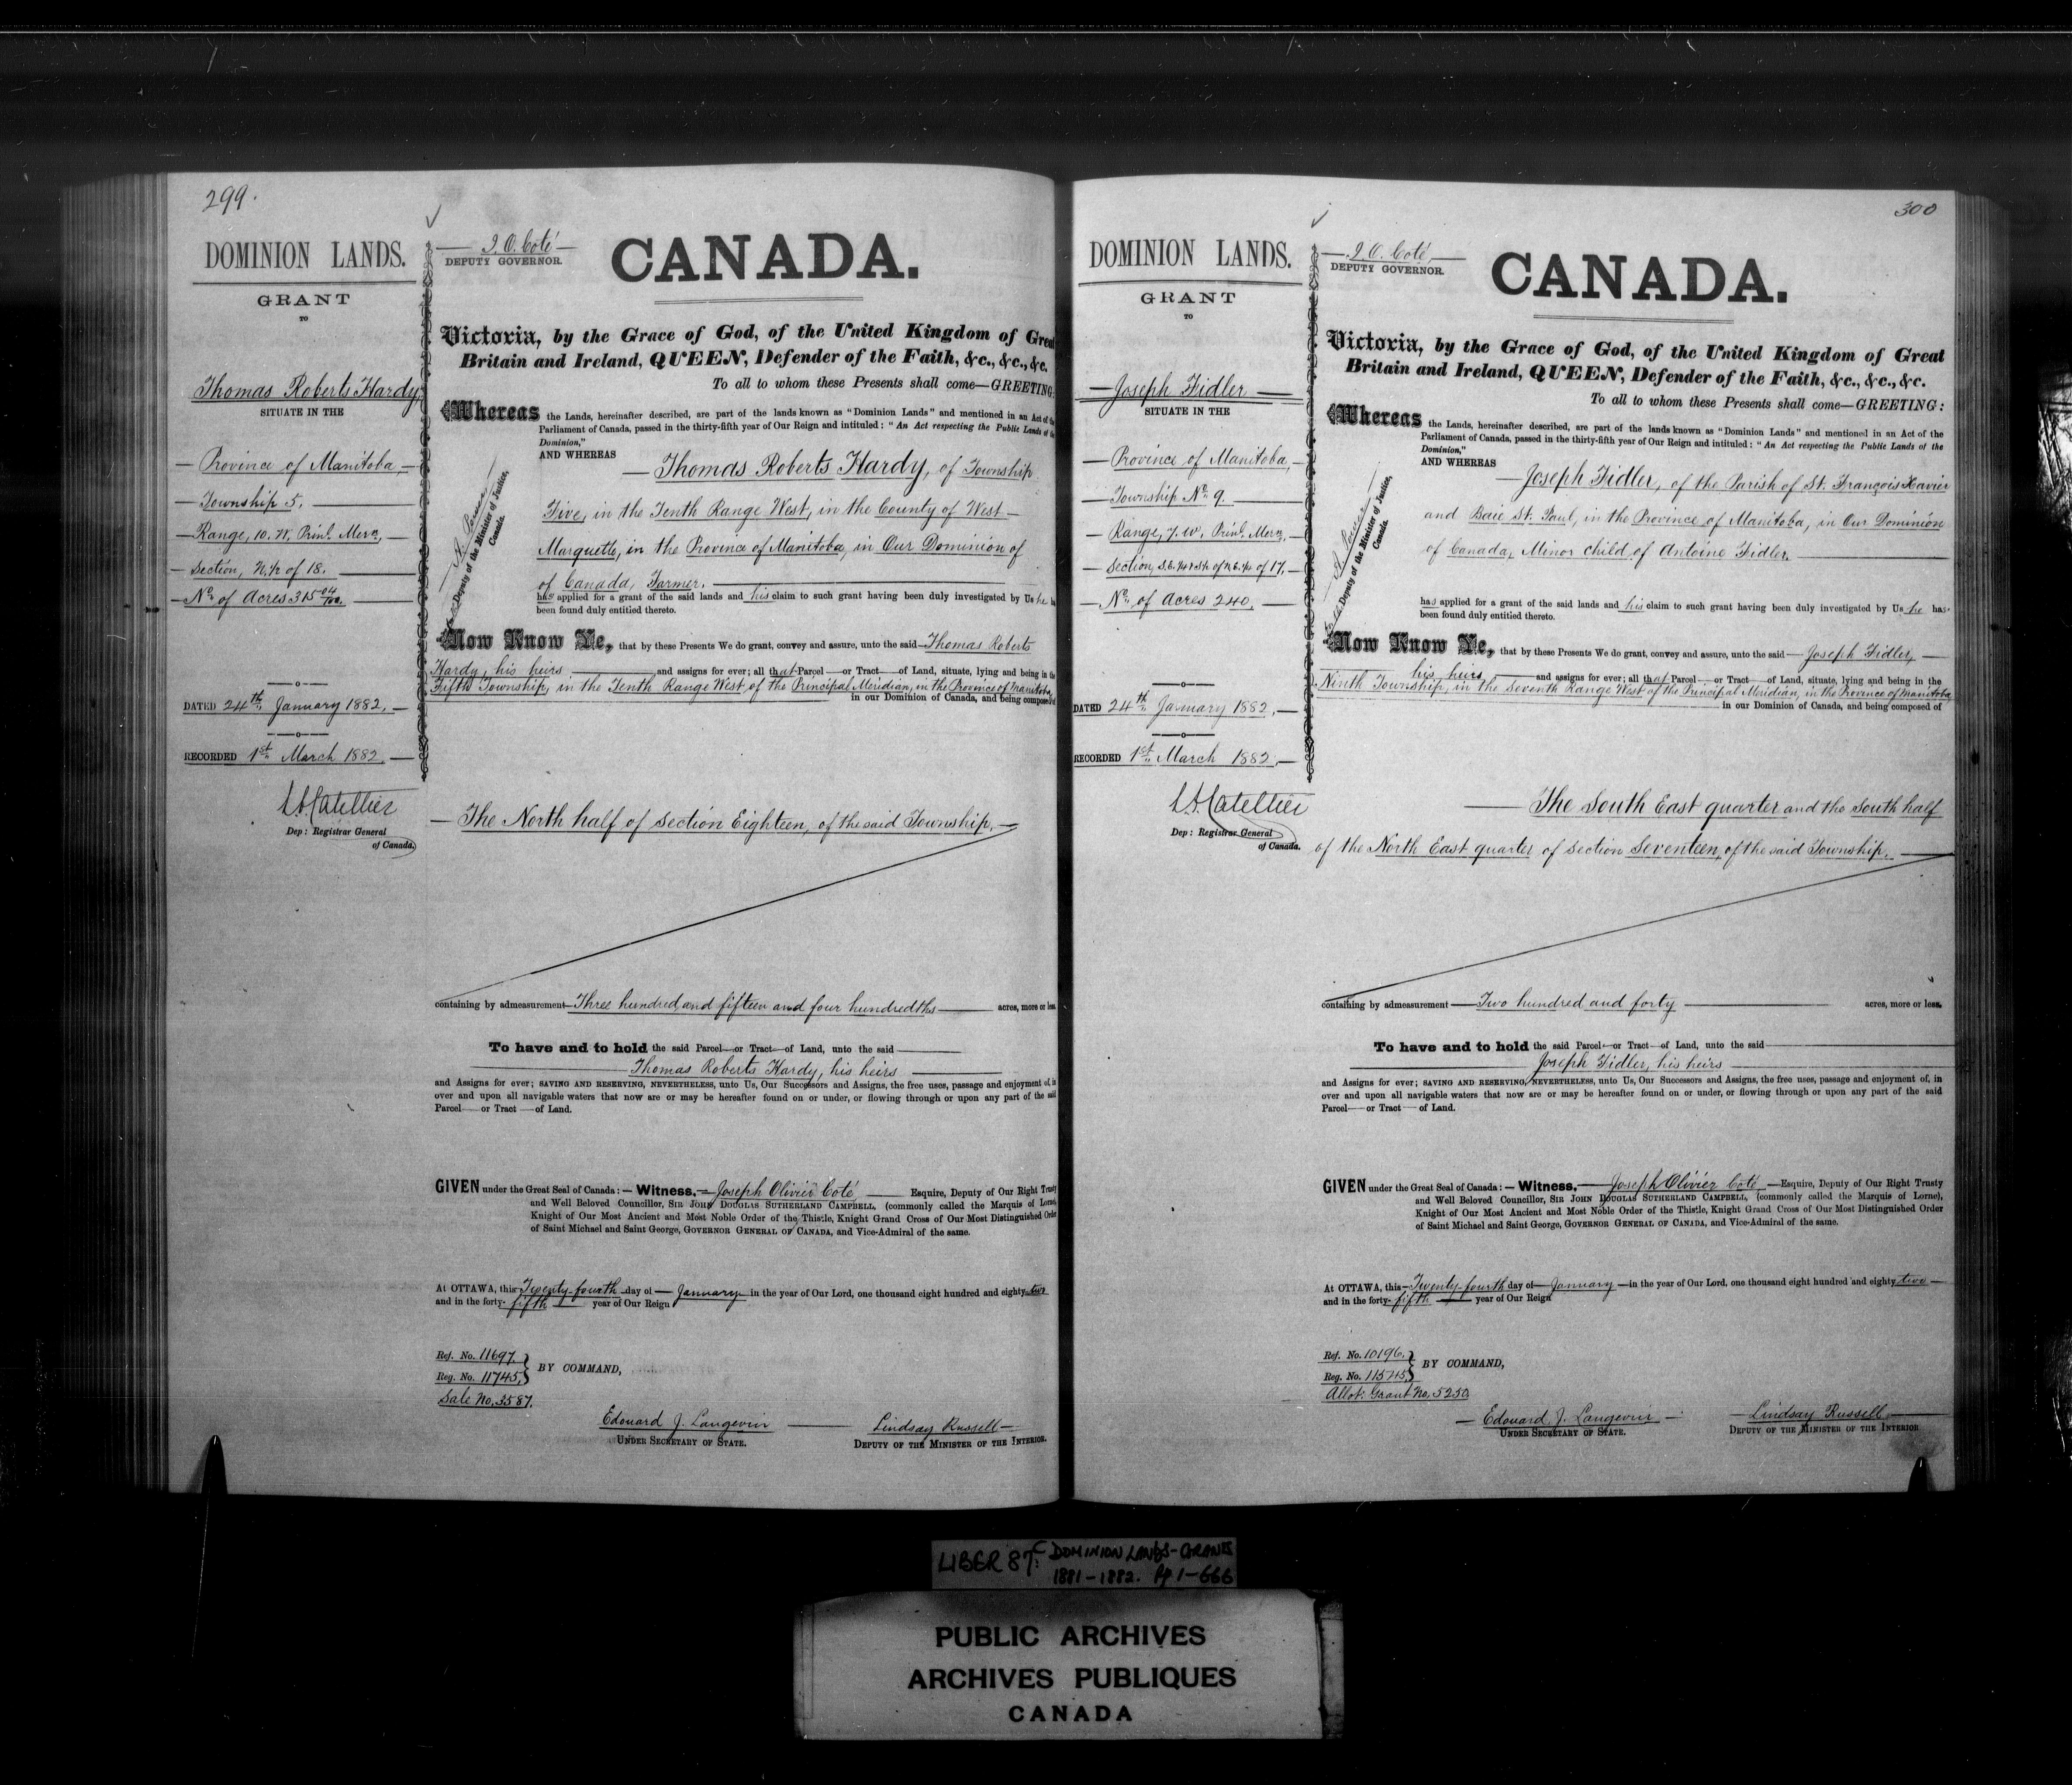 299.
DOMINION LANDS.
GRANT
TO
Thomas Roberts Hardy,
SITUATE IN THE
Province of Manitoba,
Township 5.
Range, 10. W. Prinl. Mern,
Section, N. 1/2 of 18.
No. of Acres 315 04/100.
DATED 24th January 1882.
RECORDED 1st March 1882.
L.A. Catellier
Dep: Registrar General
of Canada.
J. O. Coté
DEPUTY GOVERNOR.
CANADA.
Victoria, by the Grace of God, of the United Kingdom of Great
Britain and Ireland, QUEEN, Defender of the Faith, &c., &c., &c.
To all to whom these Presents shall come—GREETING:
Whereas the Lands, hereinafter described, are part of the lands known as "Dominion Lands" and mentioned in an Act of the
Parliament of Canada, passed in the thirty-fifth year of Our Reign and intituled: "An Act respecting the Public Lands of the
Dominion,"
AND WHEREAS
Thomas Roberts Hardy, of Township
Five, in the Tenth Range West, in the County of West
Marquette, in the Province of Manitoba, in Our Dominion of
of Canada, Farmer.
Deputy of the Minister of Justice,
Canada.
has applied for a grant of the said lands and his claim to such grant having been duly investigated by Us he has
been found duly entitled thereto.
Now Know Ye, that by these Presents We do grant, convey and assure, unto the said Thomas Roberts
Hardy, his heirs and assigns for ever; all that Parcel or Tract of Land, situate, lying and being in the
Fifth Township, in the Tenth Range West, of the Principal Meridian, in the Province of Manitoba,
in our Dominion of Canada, and being composed of
The North half of Section Eighteen, of the said Township.
containing by admeasurement Three hundred and fifteen and four hundredths acres, more or less.
To have and to hold the said Parcel or Tract of Land, unto the said
Thomas Roberts Hardy, his heirs
and Assigns for ever; SAVING AND RESERVING, NEVERTHELESS, unto Us, Our Successors and Assigns, the free uses, passage and enjoyment of, in
over and upon all navigable waters that now are or may be hereafter found on or under, or flowing through or upon any part of the said
Parcel or Tract of Land.
GIVEN under the Great Seal of Canada:—Witness, Joseph Olivier Coté, Esquire, Deputy of Our Right Trusty
and Well Beloved Councillor, SIR JOHN DOUGLAS SUTHERLAND CAMPBELL, (commonly called the Marquis of Lorne),
Knight of Our Most Ancient and Most Noble Order of the Thistle, Knight Grand Cross of Our Most Distinguished Order
of Saint Michael and Saint George, GOVERNOR GENERAL OF CANADA, and Vice-Admiral of the same.
At OTTAWA, this Twenty-fourth day of January in the year of Our Lord, one thousand eight hundred and eighty two
and in the forty-fifth year of Our Reign
Ref. No. 11697.
Reg. No. 11745.
BY COMMAND,
Sale No. 3587.
Edouard J. Langevin
UNDER SECRETARY OF STATE.
Lindsay Russell
DEPUTY OF THE MINISTER OF THE INTERIOR.
300
DOMINION LANDS.
GRANT
TO
Joseph Fidler
SITUATE IN THE
Province of Manitoba,
Township No. 9.
Range, 7. W. Prinl. Mern,
Section, S.E.1/4 & S.1/2 of N.E.1/4 of 17.
No. of Acres 240.
DATED 24th January 1882.
RECORDED 1st March 1882.
L.A. Catellier
Dep: Registrar General
of Canada.
J. O. Coté,
DEPUTY GOVERNOR.
CANADA.
Victoria, by the Grace of God, of the United Kingdom of Great
Britain and Ireland, QUEEN, Defender of the Faith, &c., &c., &c.
To all to whom these Presents shall come—GREETING:
Whereas the Lands, hereinafter described, are part of the lands known as "Dominion Lands" and mentioned in an Act of the
Parliament of Canada, passed in the thirty-fifth year of Our Reign and intituled: "An Act respecting the Public Lands of the
Dominion,"
AND WHEREAS
Joseph Fidler, of the Parish of St. François Xavier
and Baie St. Paul, in the Province of Manitoba, in Our Dominion
of Canada, Minor child of Antoine Fidler.
Deputy of the Minister of Justice,
Canada.
has applied for a grant of the said lands and his claim to such grant having been duly investigated by Us he has
been found duly entitled thereto.
Now Know Ye, that by these Presents We do grant, convey and assure, unto the said Joseph Fidler,
his heirs and assigns for ever; all that Parcel or Tract of Land, situate, lying and being in the
Ninth Township, in the Seventh Range West of the Principal Meridian, in the Province of Manitoba,
in our Dominion of Canada, and being composed of
The South East quarter and the South half
of the North East quarter of Section Seventeen, of the said Township.
containing by admeasurement Two hundred and forty acres, more or less.
To have and to hold the said Parcel or Tract of Land, unto the said
Joseph Fidler, his heirs
and Assigns for ever; SAVING AND RESERVING, NEVERTHELESS, unto Us, Our Successors and Assigns, the free uses, passage and enjoyment of, in
over and upon all navigable waters that now are or may be hereafter found on or under, or flowing through or upon any part of the said
Parcel or Tract of Land.
GIVEN under the Great Seal of Canada:—Witness, Joseph Olivier Coté Esquire, Deputy of Our Right Trusty
and Well Beloved Councillor, SIR JOHN DOUGLAS SUTHERLAND CAMPBELL, (commonly called the Marquis of Lorne),
Knight of Our Most Ancient and Most Noble Order of the Thistle, Knight Grand Cross of Our Most Distinguished Order
of Saint Michael and Saint George, GOVERNOR GENERAL OF CANADA, and Vice-Admiral of the same.
At OTTAWA, this Twenty-fourth day of January in the year of Our Lord, one thousand eight hundred and eighty two
and in the forty-fifth year of Our Reign
Ref. No. 10196.
Reg. No. 11545.
BY COMMAND,
Allot. Grant No. 5250.
Edouard J. Langevin
UNDER SECRETARY OF STATE.
Lindsay Russell
DEPUTY OF THE MINISTER OF THE INTERIOR
LIBER 87C: DOMINION LANDS-GRANTS
1881-1882. Pp 1-666
PUBLIC ARCHIVES
ARCHIVES PUBLIQUES
CANADA